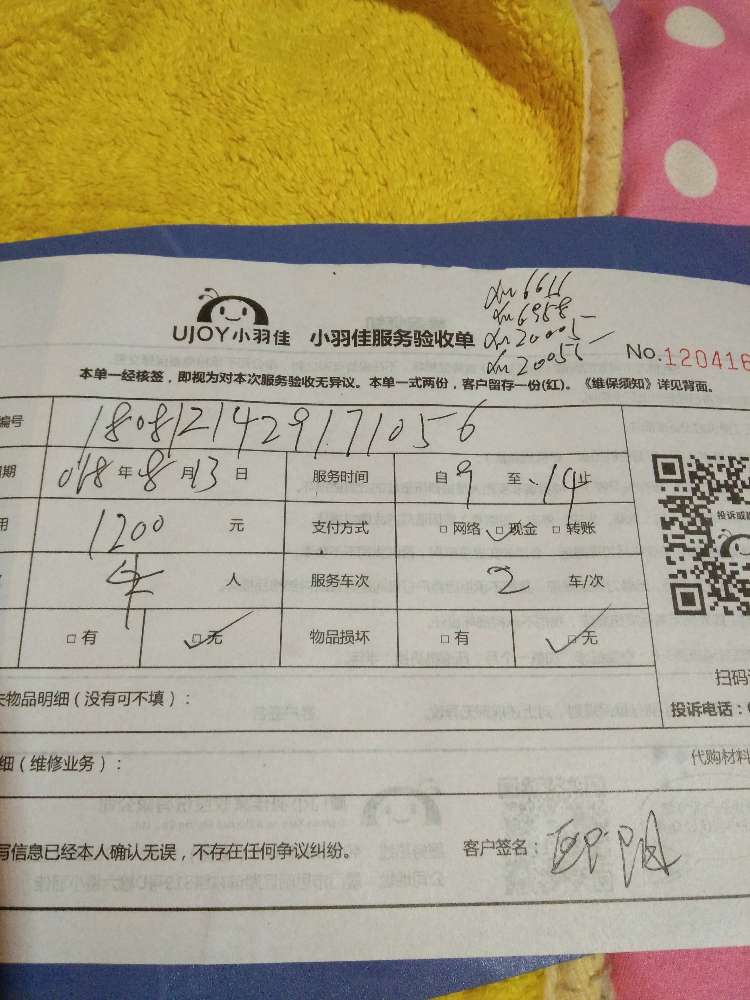 xm6611
xm6958
xm20005
xm20056
UJOY小羽佳 小羽佳服务验收单
No.120416
本单一经核签，即视为对本次服务验收无异议。本单一式两份，客户留存一份(红)。《维保须知》详见背面。
编号 1808121429171056
期 018年8月13日 服务时间 自9至14止
用 1200 元 支付方式 □网络 □现金 □转账
人 服务车次 2 车/次
□有 □无 物品损坏 □有 □无
投诉或
扫码
失物品明细（没有可不填）：
投诉电话：
细（维修业务）：
代购材料
写信息已经本人确认无误，不存在任何争议纠纷。 客户签名：